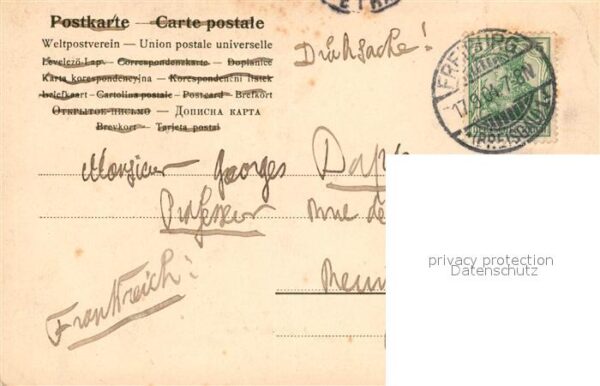 Postkarte — Carte postale
Weltpostverein — Union postale universelle
Levelező-Lap. — Correspondenzkarte — Dopisnice
Karta korespondencyjna — Korespondenční lístek
Brefkaart — Cartolina postale — Postcard — Brefkort
Открытое письмо — Дописна карта
Brevkort — Tarjeta postal
Drucksache!
FREIBURG
17.8.04. 7-8N
(BREISGAU)
Monsieur Georges
Professeur rue de
Frankreich!
privacy protection
Datenschutz